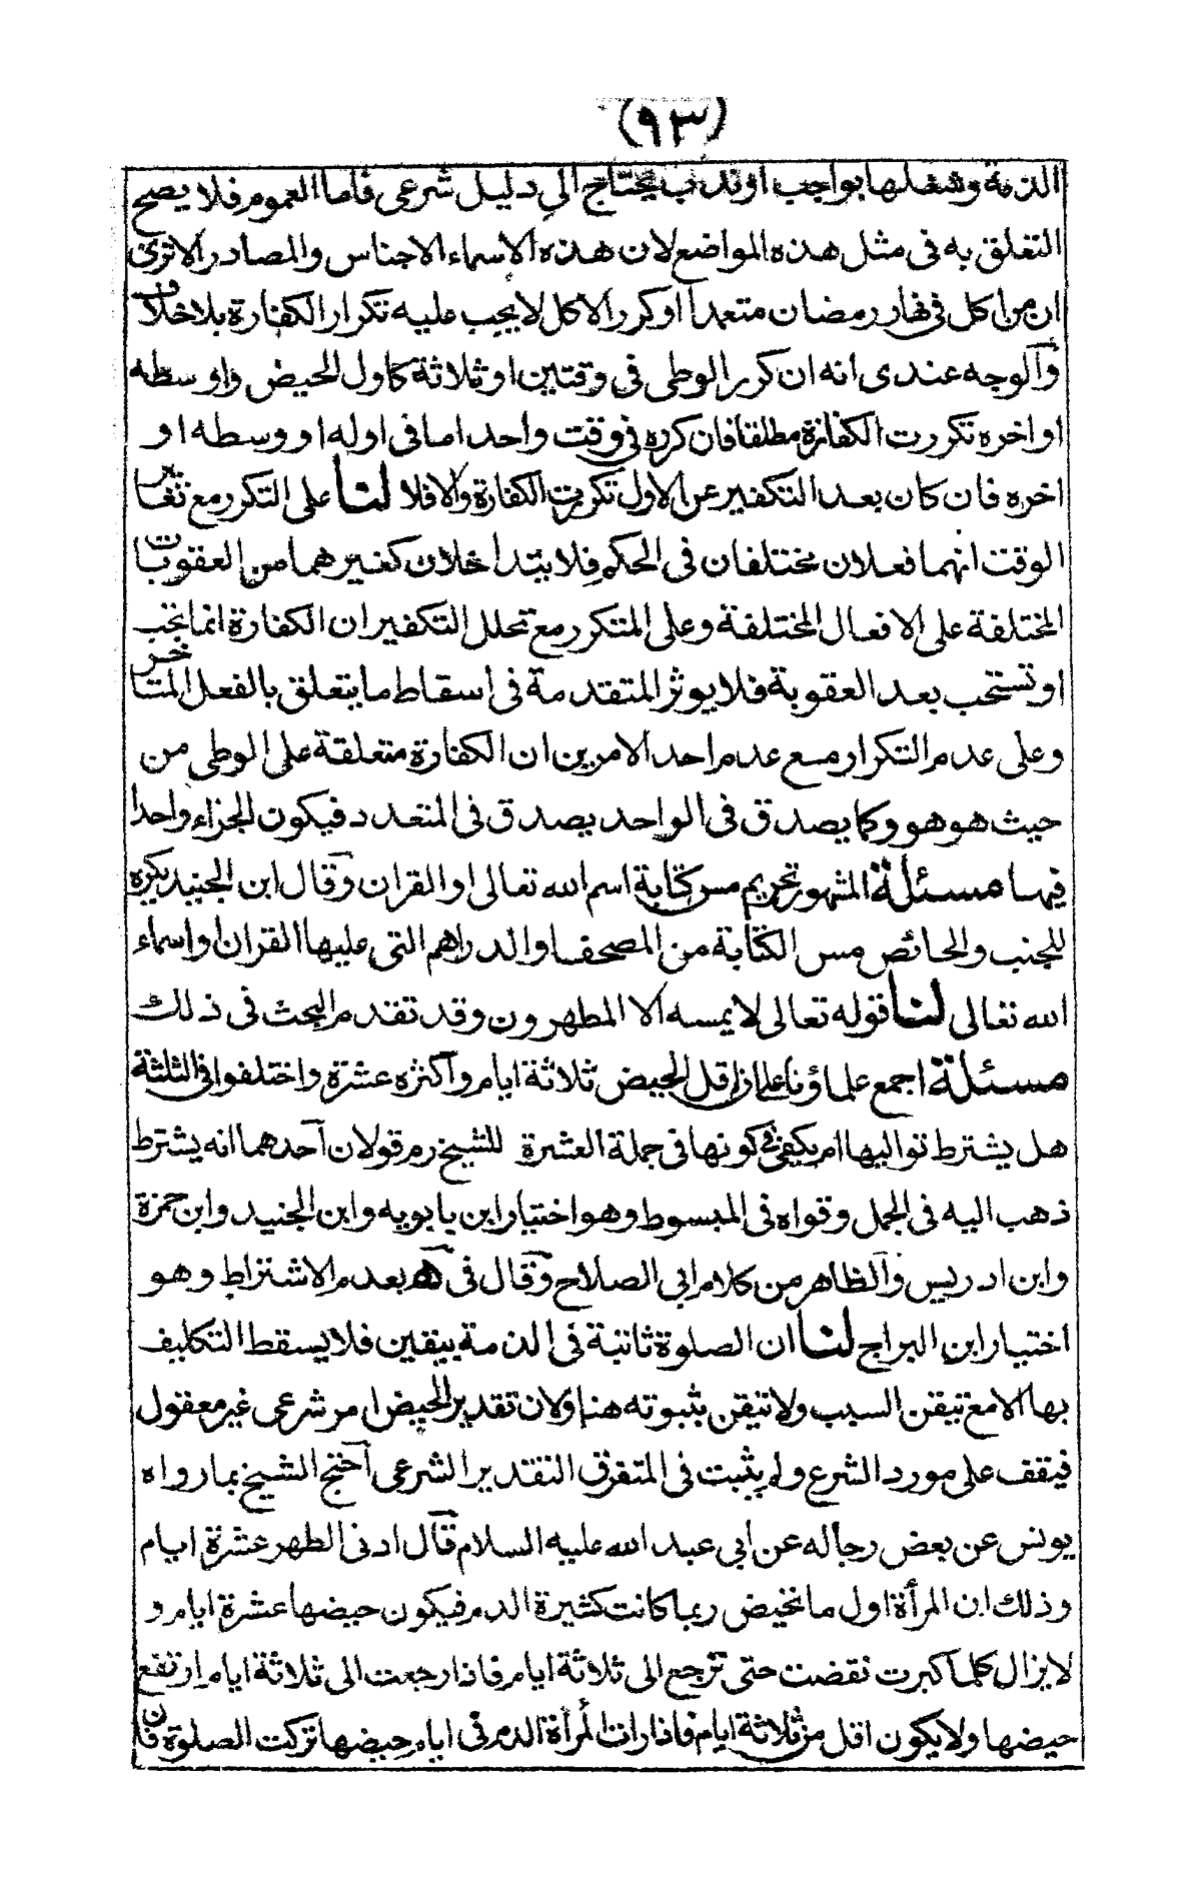 (٩٣)
الذمة وشغلها بواجب او ندب يحتاج الى دليل شرعى فاما العموم فلا يصح
التعلق به فى مثل هذه المواضع لان هذه الاسماء الاجناس والمصادر الا ترى
ان من اكل فى نهار رمضان متعمدا او كرر الاكل لا يجب عليه تكرار الكفارة بلا خلاف
والوجه عندى انه ان كرر الوطى فى وقتين او ثلاثة كاول الحيض واوسطه
او اخره تكررت الكفارة مطلقا فان كرره فى وقت واحد اما فى اوله او وسطه او
اخره فان كان بعد التكفير عن الاول تكررت الكفارة والا فلا لنا على التكرر مع تغاير
الوقت انهما فعلان مختلفان فى الحكم فلا يتداخلان كغيرهما من العقوبات
المختلفة على الافعال المختلفة وعلى المتكرر مع تخلل التكفير ان الكفارة انما تجب
او تستحب بعد العقوبة فلا يوثر المتقدمة فى اسقاط ما يتعلق بالفعل المتاخر
وعلى عدم التكرار مع عدم احد الامرين ان الكفارة متعلقة على الوطى من
حيث هو هو وكما يصدق فى الواحد يصدق فى المتعدد فيكون الجزاء واحدا
فيها مسئلة المشهور تحريم مس كتابة اسم الله تعالى او القران وقال ابن الجنيد يكره
للجنب والحائض مس الكتابة من المصحف او الدراهم التى عليها القران او اسماء
الله تعالى لنا قوله تعالى لا يمسه الا المطهرون وقد تقدم البحث فى ذلك
مسئلة اجمع علماؤنا على ان اقل الحيض ثلاثة ايام واكثره عشرة واختلفوا فى الثلثة
هل يشترط تواليها ام يكفى كونها فى جملة العشرة للشيخ ره قولان احدهما انه يشترط
ذهب اليه فى الجمل وقواه فى المبسوط وهو اختيار ابن بابويه وابن الجنيد وابن حمزة
وابن ادريس والظاهر من كلام ابى الصلاح وقال فى يه بعدم الاشتراط وهو
اختيار ابن البراج لنا ان الصلوة ثابتة فى الذمة بيقين فلا يسقط التكليف
بها الا مع تيقن السبب ولا تيقن بثبوته هنا ولان تقدير الحيض امر شرعى غير معقول
فيقف على مورد الشرع ولم يثبت فى المتفرق التقدير الشرعى احتج الشيخ بما رواه
يونس عن بعض رجاله عن ابى عبد الله عليه السلام قال ادنى الطهر عشرة ايام
وذلك ان المرأة اول ما تحيض ربما كانت كثيرة الدم فيكون حيضها عشرة ايام و
لا يزال كلما كبرت نقضت حتى ترجع الى ثلاثة ايام فاذا رجعت الى ثلاثة ايام ارتفع
حيضها ولا يكون اقل من ثلاثة ايام فاذا رات المرأة الدم فى ايام حيضها تركت الصلوة فان